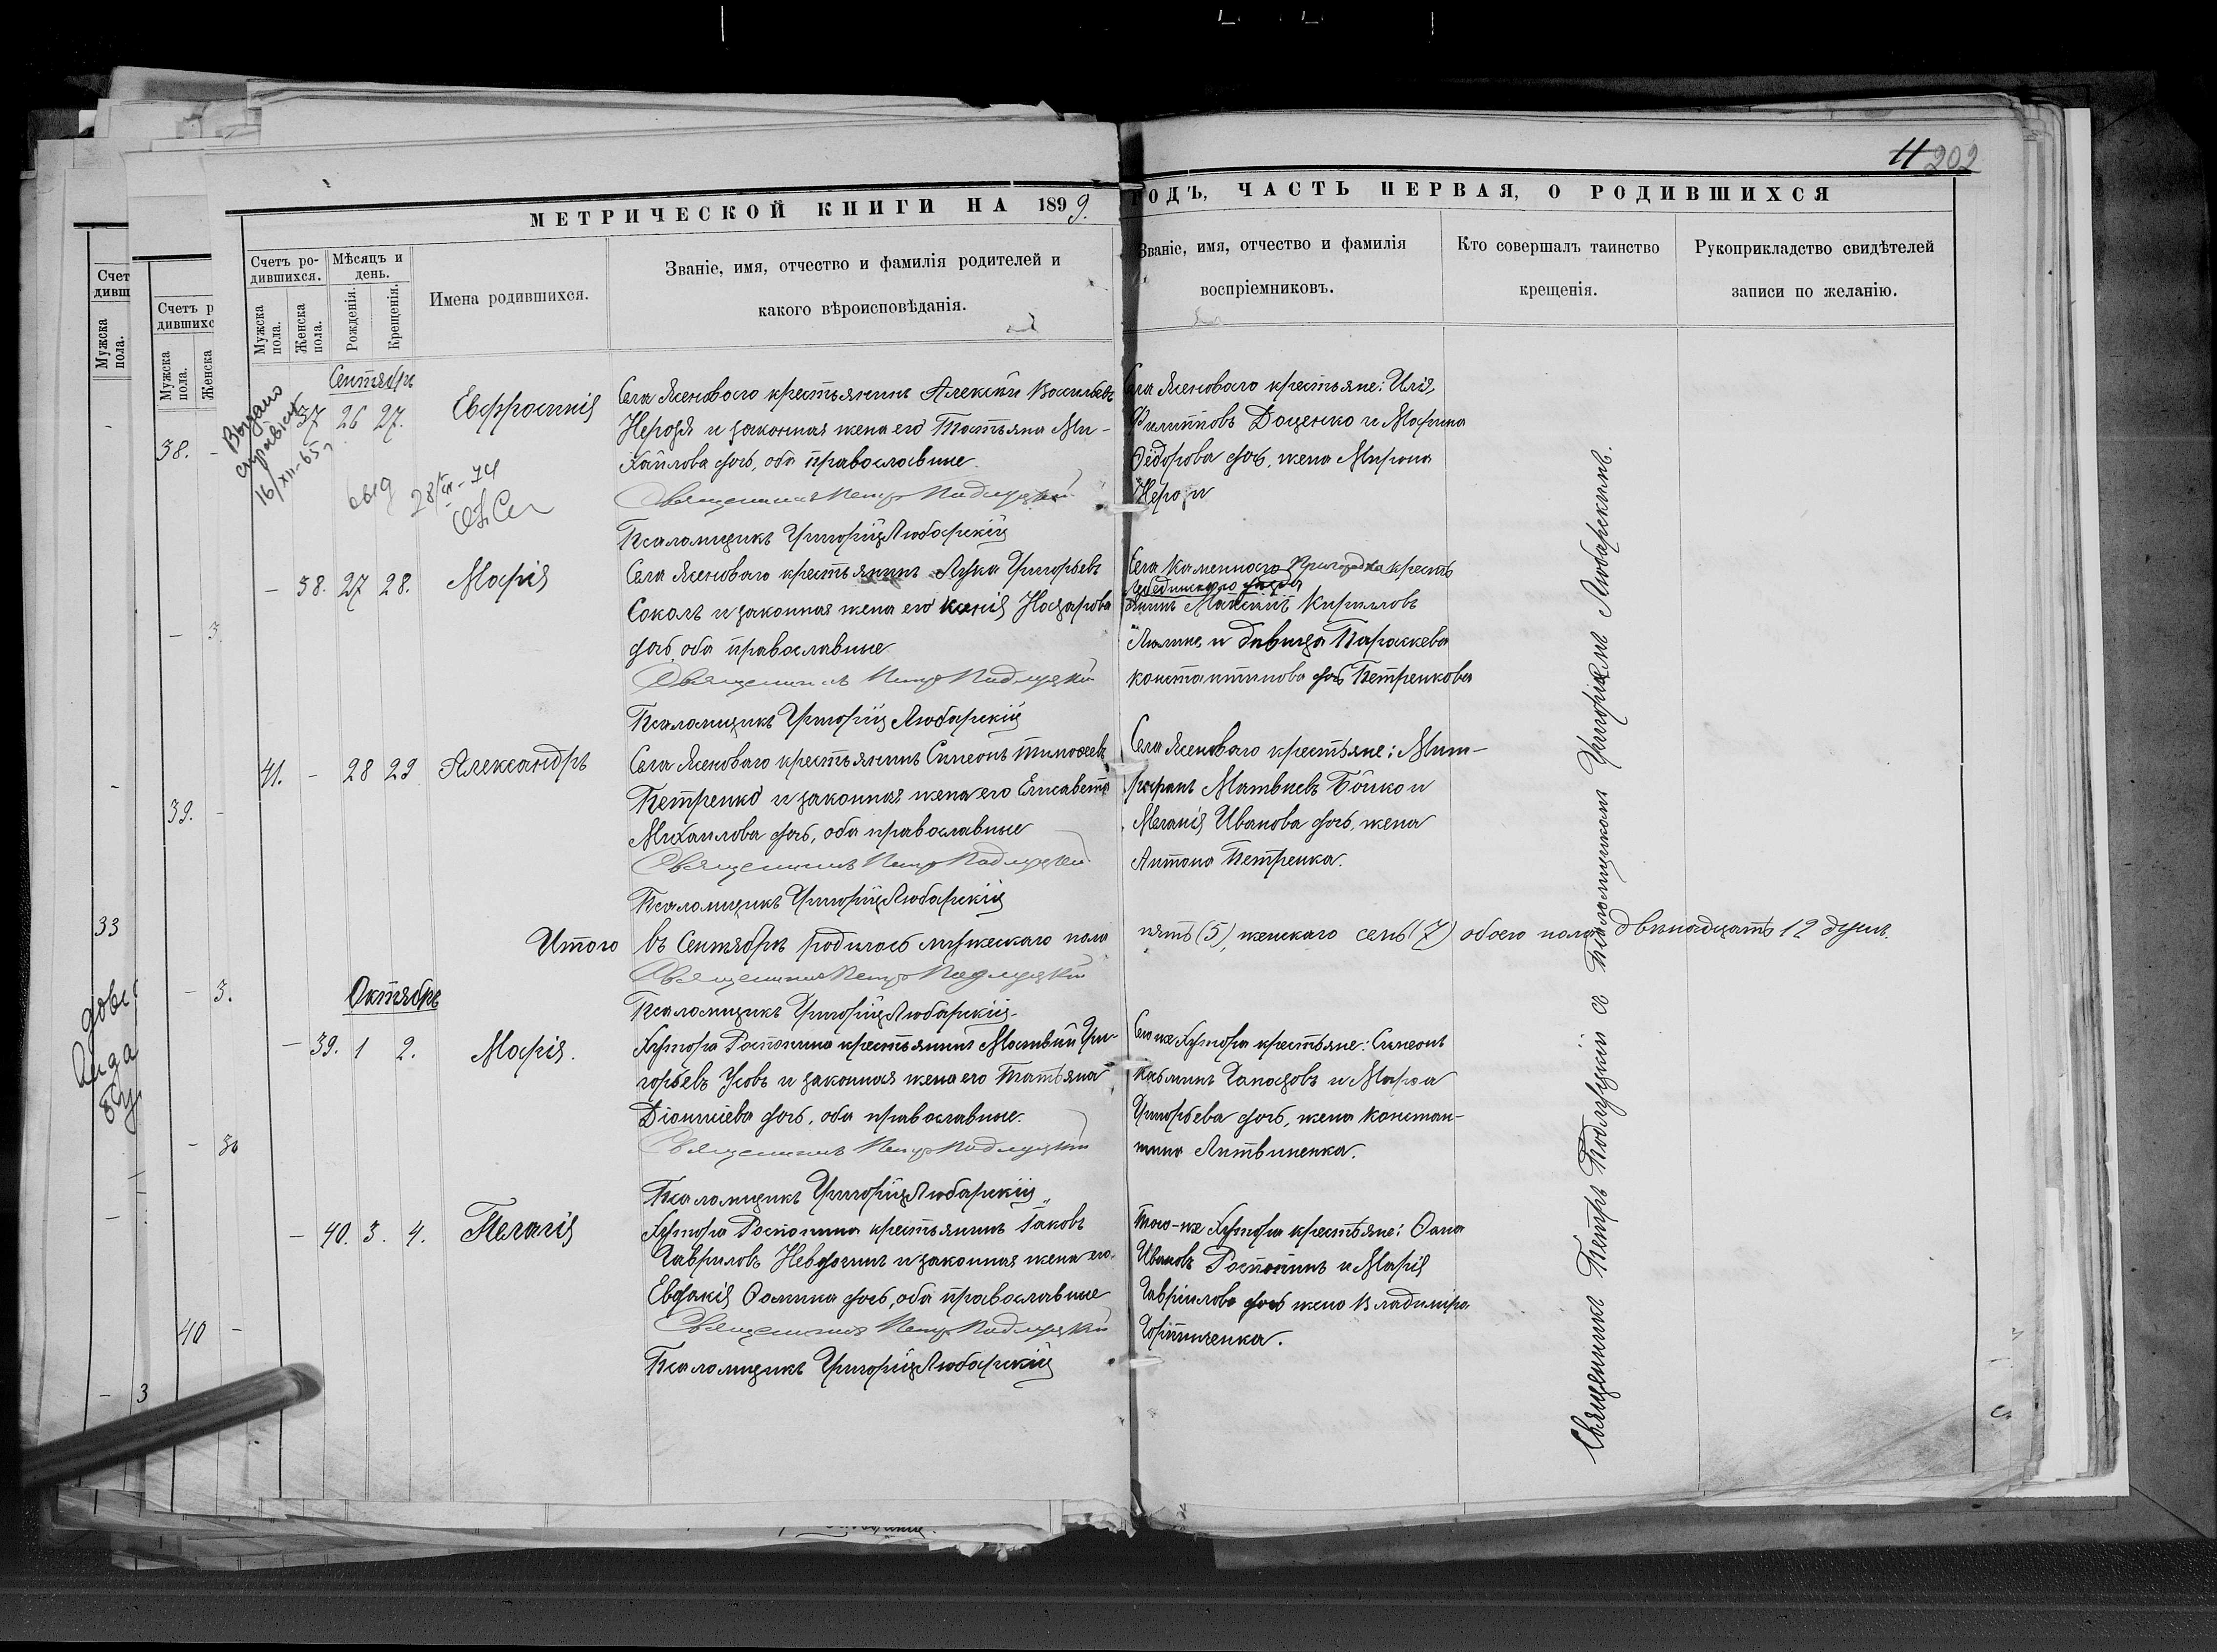 11 202
МЕТРИЧЕСКОЙ КНИГИ НА 1899.
ГОДЪ, ЧАСТЬ ПЕРВАЯ, О РОДИВШИХСЯ
Счетъ ро-
дившихся.
Мѣсяцъ и
день.
Мужска
пола.
Женска
пола.
Рожденія.
Крещенія.
Имена родившихся.
Званіе, имя, отчество и фамилія родителей и
какого вѣроисповѣданія.
Званіе, имя, отчество и фамилія
воспріемниковъ.
Кто совершалъ таинство
крещенія.
Рукоприкладство свидѣтелей
записи по желанію.
Выдано
справка
16/XII-65
Сентябрь
37 26 27. Евфросинія
Села Ясеноваго крестьянинъ Алексѣй Васильевъ
Нерозя и законная жена его Татьяна Ми-
хайлова дочь, оба православные
Священникъ Петръ Подлуцкій
Псаломщикъ Григорій Любарскій
Села Ясеноваго крестьяне: Илія
Филипповъ Доценко и Марина
Ѳедорова дочь, жена Мирона
Нерози
- 38. 27 28. Марія
Села Ясеноваго крестьянинъ Лука Григорьевъ
Соколъ и законная жена его Ксенія Назарова
дочь, оба православные
Священникъ Петръ Подлуцкій
Псаломщикъ Григорій Любарскій
Села Каменнаго крестъ
Лебединскаго уѣзда
янинъ Максимъ Кирилловъ
и дѣвица Параскева
Константинова дочь Петренкова
41. - 28 29 Александръ
Села Ясеноваго крестьянинъ Симеонъ Тимоѳеевъ
Петренко и законная жена его Елисавета
Михаилова дочь, оба православные
Священникъ Петръ Подлуцкій
Псаломщикъ Григорій Любарскій
Села Ясеноваго крестьяне: Мит-
рофанъ Матвѣевъ Бойко и
Меланія Иванова дочь, жена
Антона Петренка.
Итого въ Сентябрѣ родилось мужескаго пола пять (5), женскаго семь (7) обоего пола двѣнадцать 12 душъ.
Священникъ Петръ Подлуцкій
Псаломщикъ Григорій Любарскій
Октябрь
- 39. 1 2. Марія.
Хутора Распопина крестьянинъ Матвѣй Гри-
горьевъ Усовъ и законная жена его Татьяна
Діонисіева дочь, оба православные.
Священникъ Петръ Подлуцкій
Псаломщикъ Григорій Любарскій
хутора крестьяне: Симеонъ
Косминъ Гапоновъ и Марѳа
Григорьева дочь, жена Констан-
тина Литвиненка.
- 40. 3. 4. Пелагія
Хутора Распопина крестьянинъ Іаковъ
Гавриловъ и законная жена его
Евдокія Ѳомина дочь, оба православные
Священникъ Петръ Подлуцкій
Псаломщикъ Григорій Любарскій
Того-же хутора крестьяне: Ѳома
Ивановъ Распопинъ и Марія
Гавріилова дочь жена Владиміра
Священникъ Петръ Подлуцкій съ Псаломщикомъ Григоріемъ Любарскимъ.
Счет
дивш
Мужска
пола.
Счетъ р
дившихс
Мужска
пола.
Женска
38.
39.
33
3.
40
3